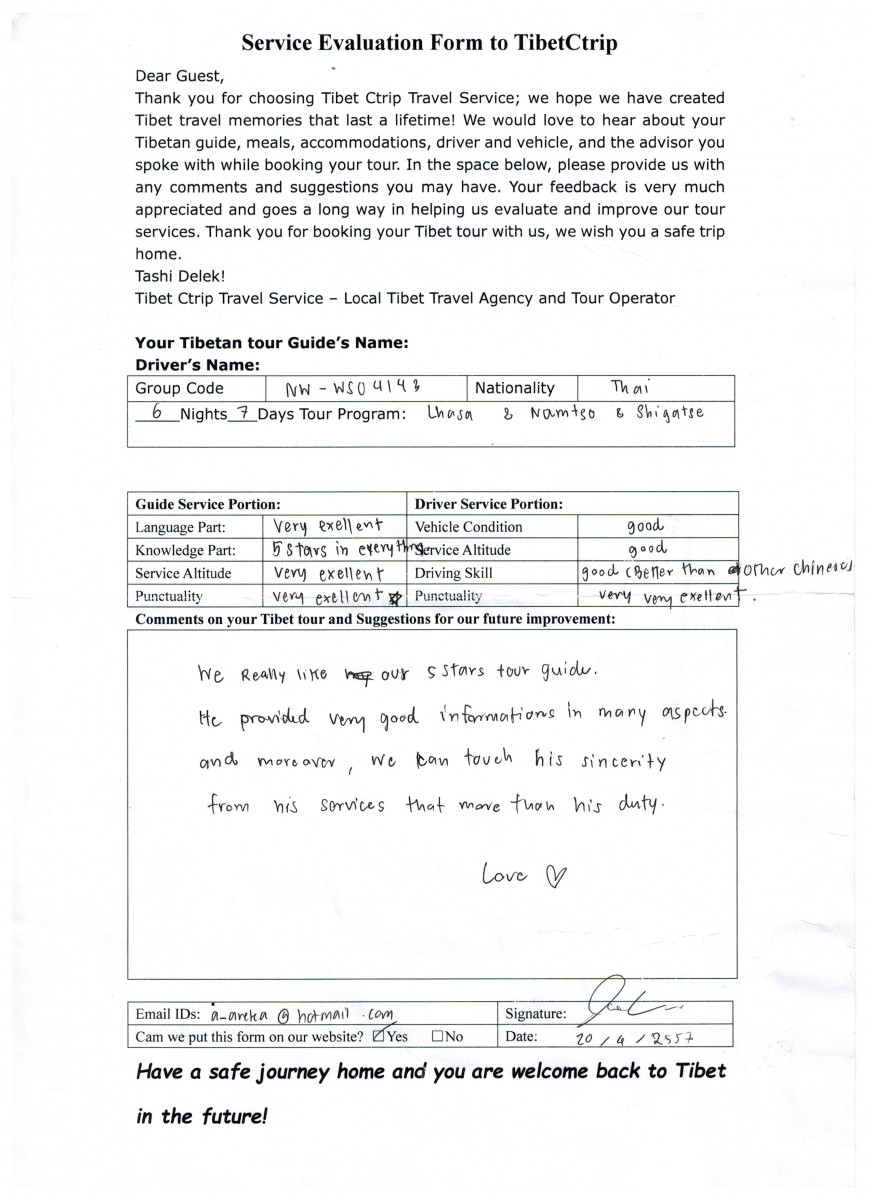 Service Evaluation Form to TibetCtrip
Dear Guest,
Thank you for choosing Tibet Ctrip Travel Service; we hope we have created
Tibet travel memories that last a lifetime! We would love to hear about your
Tibetan guide, meals, accommodations, driver and vehicle, and the advisor you
spoke with while booking your tour. In the space below, please provide us with
any comments and suggestions you may have. Your feedback is very much
appreciated and goes a long way in helping us evaluate and improve our tour
services. Thank you for booking your Tibet tour with us, we wish you a safe trip
home.
Tashi Delek!
Tibet Ctrip Travel Service – Local Tibet Travel Agency and Tour Operator
Your Tibetan tour Guide's Name:
Driver's Name:
Group Code NW - WS04143 Nationality Thai
6 Nights 7 Days Tour Program: Lhasa & Namtso & Shigatse
Guide Service Portion: Driver Service Portion:
Language Part: Very exellent Vehicle Condition good
Knowledge Part: 5 stars in everything Service Altitude good
Service Altitude very exellent Driving Skill good (Better than other chineses
Punctuality very exellent ☆ Punctuality very very exellent.
Comments on your Tibet tour and Suggestions for our future improvement:
We Really like our 5 stars tour guide.
He provided very good informations in many aspects.
and moreover, we can touch his sincerity
from his services that more than his duty.
Love ♡
Email IDs: a-areka @ hotmail .com Signature:
Cam we put this form on our website? ☑Yes ☐No Date: 20 / 4 / 2557
Have a safe journey home and you are welcome back to Tibet
in the future!